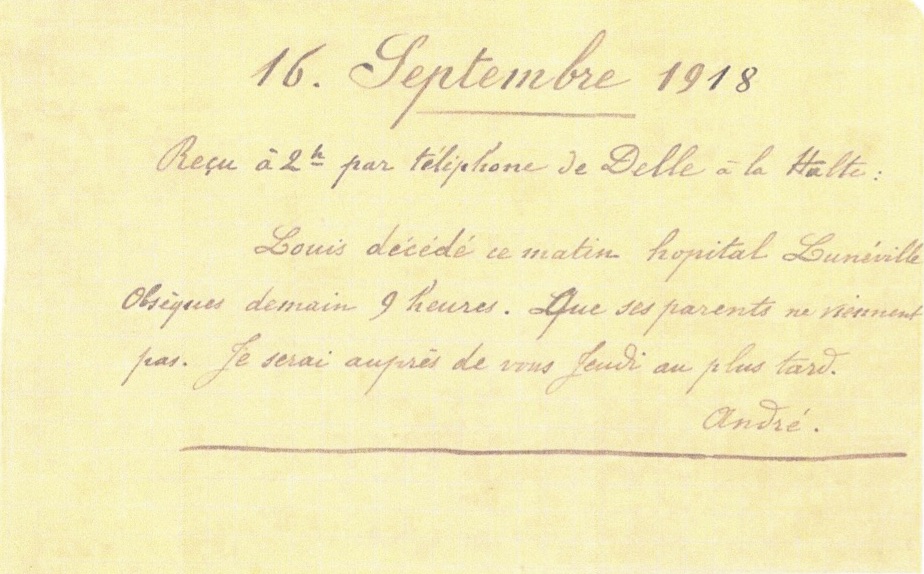 16. Septembre 1918
Reçu à 2h par téléphone de Delle à la Halte :
Louis décédé ce matin hopital Lunéville
Obsèques demain 9 heures. Que ses parents ne viennent
pas. Je serai auprès de vous Jeudi au plus tard.
André.